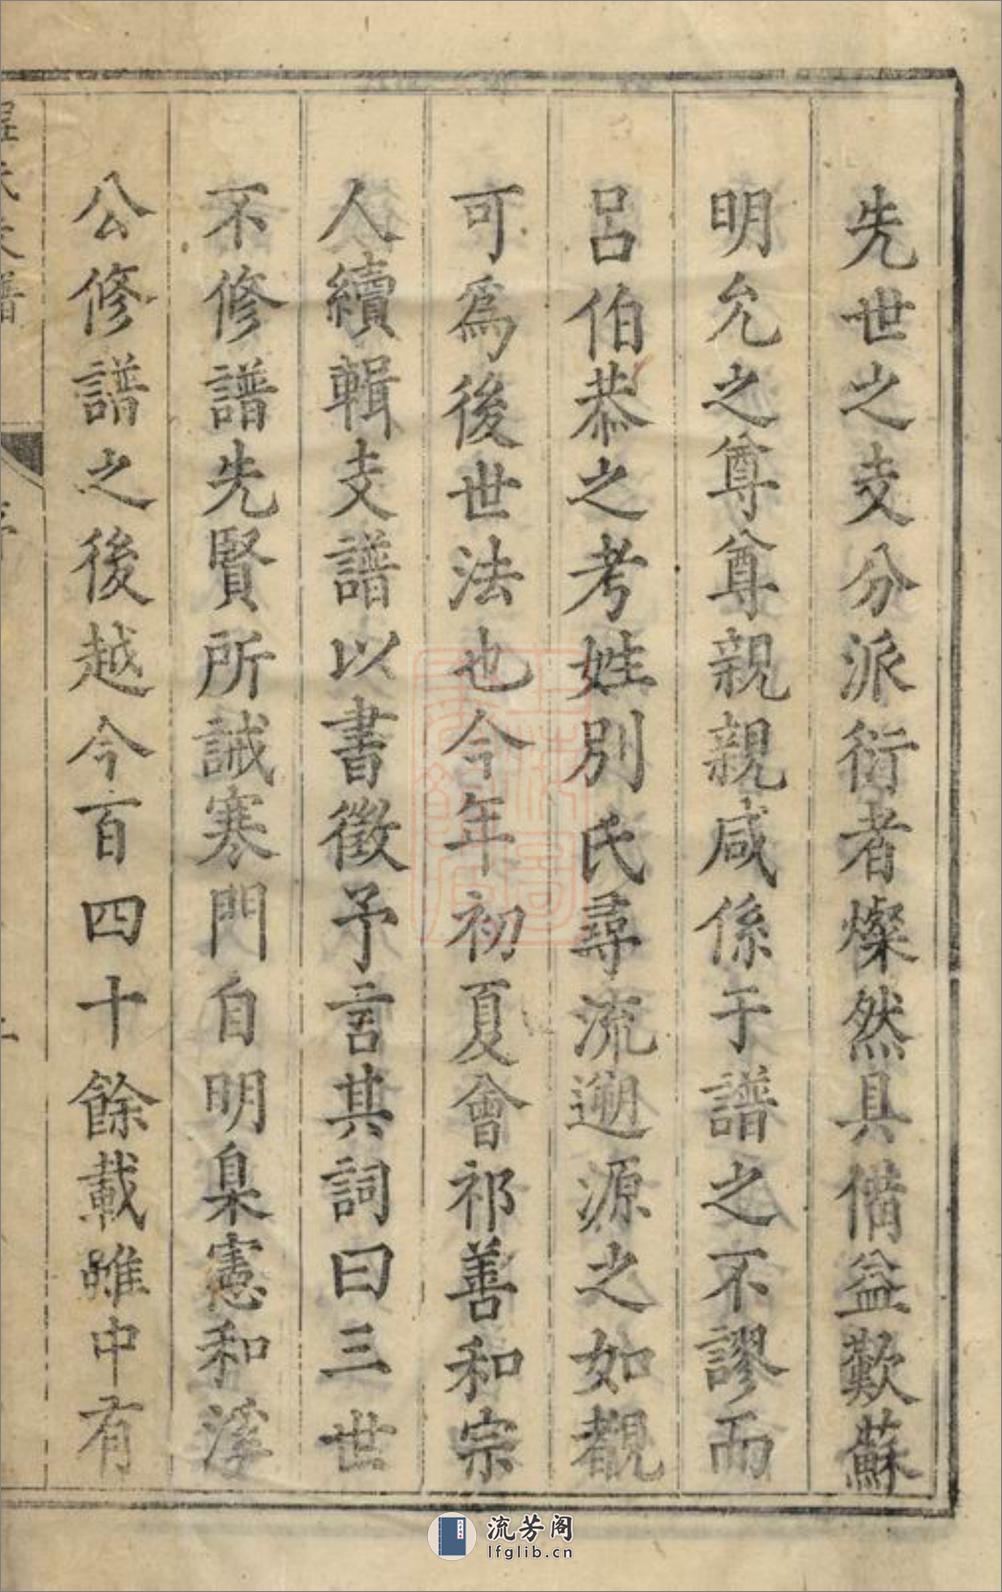 先世之支分派衍者燦然具備益歎蘇
明允之尊尊親親咸係于譜之不謬而
呂伯恭之考姓別氏尋流遡源之如覩
可為後世法也今年初夏會祁善和宗
人續輯支譜以書徵予言其詞曰三世
不修譜先賢所誡寒門自明臬憲和溪
公修譜之後越今百四十餘載雖中有
氏支譜
序
流芳阁
lfglib.cn